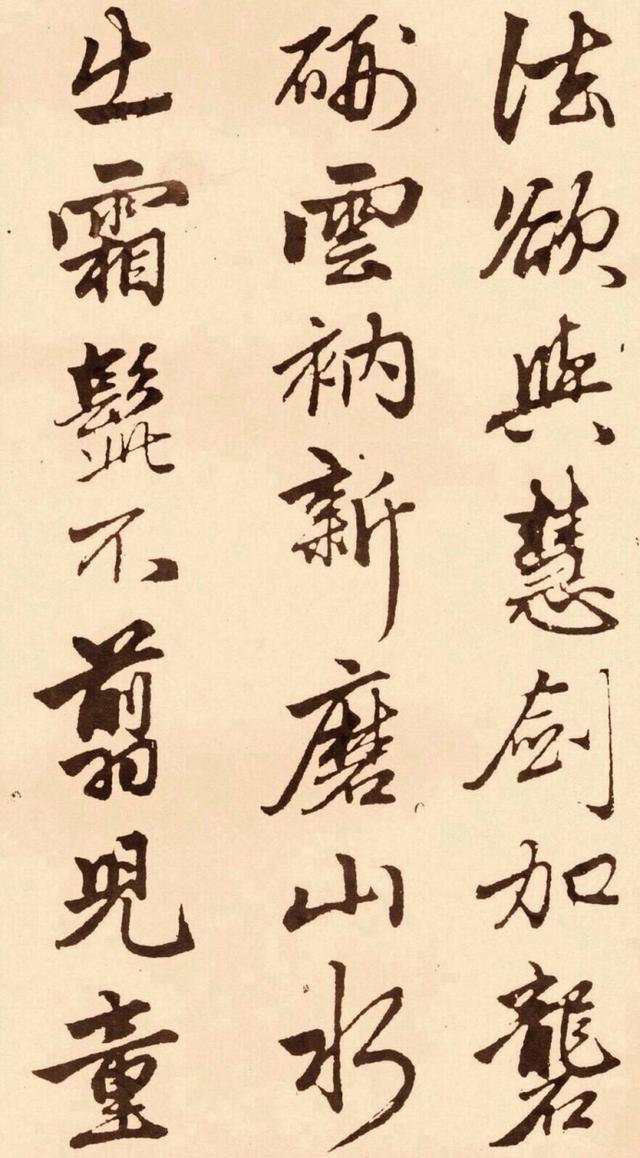 法欲與慧劍加礱
硎雲衲新磨山水
出霜髭不翦兒童